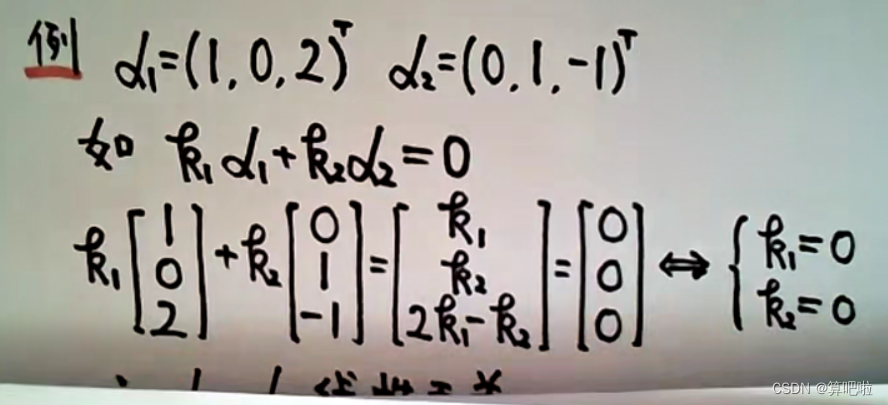 例 α₁=(1,0,2)ᵀ α₂=(0,1,-1)ᵀ
如 k₁α₁+k₂α₂=0
k₁[1 0 2]+k₂[0 1 -1]=[k₁ k₂ 2k₁-k₂]=[0 0 0]⇔{k₁=0 k₂=0
CSDN @算吧啦